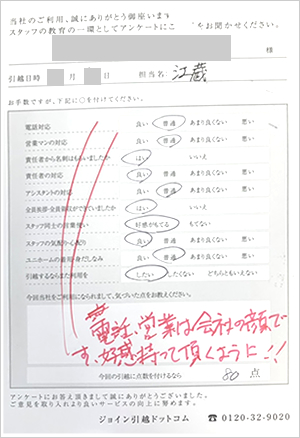 当社のご利用、誠にありがとう御座います
スタッフの教育の一環としてアンケートにご をお聞かせください。
様
引越日時 月 日 担当名 江蔵
お手数ですが、下記に○を付けてください。
電話対応 良い 普通 あまり良くない 悪い
営業マンの対応 良い 普通 あまり良くない 悪い
責任者から名刺はもらいましたか はい いいえ
責任者の対応 良い 普通 あまり良くない 悪い
アシスタントの対応 良い 普通 あまり良くない 悪い
全員挨拶・全員 できていましたか はい いいえ
スタッフ同士の言葉使い 好感がもてる もてない
スタッフの気配り・心配り 良い 普通 あまり良くない 悪い
ユニホームの 身だしなみ 良い 普通 あまり良くない 悪い
引越しするならまた利用を したい したくない どちらともいえない
今回当社をご利用になられまして、気づいた点をお教えください。
電話、営業は会社の顔で
す、好感持って頂くように!!
今回の引越しに点数を付けるなら 80 点
アンケートにお答え頂きまして誠にありがとうございました。
ご意見を取り入れより良いサービスの向上に努めます。
ジョイン引越ドットコム ☎0120-32-9020